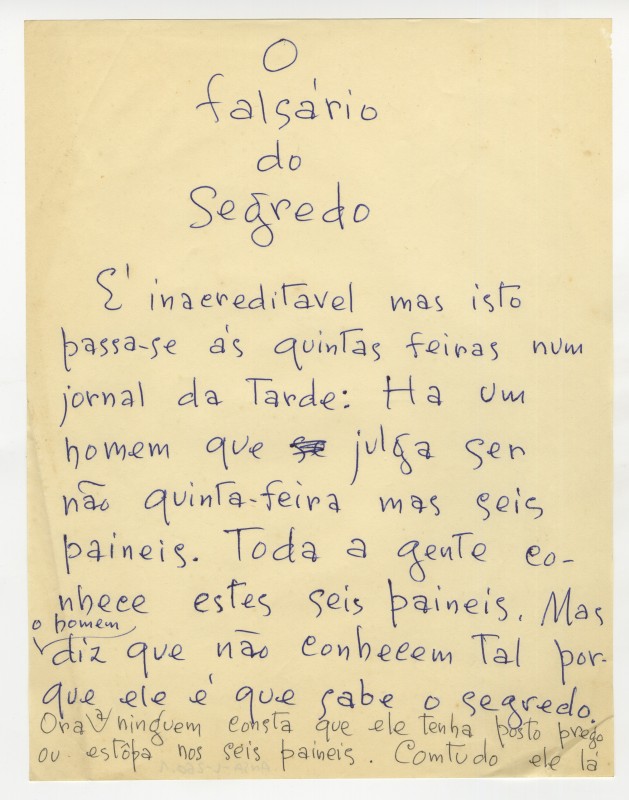 O
falsário
do
Segredo
E' inacreditavel mas isto
passa-se ás quintas feiras num
jornal da Tarde: Ha um
homem que julga ser
não quinta-feira mas seis
paineis. Toda a gente co-
nhece estes seis paineis. Mas
o homem
diz que não conhecem tal por-
que ele é que sabe o segredo.
Ora a ninguem consta que ele tenha posto prego
ou estôpa nos seis paineis. Comtudo ele lá